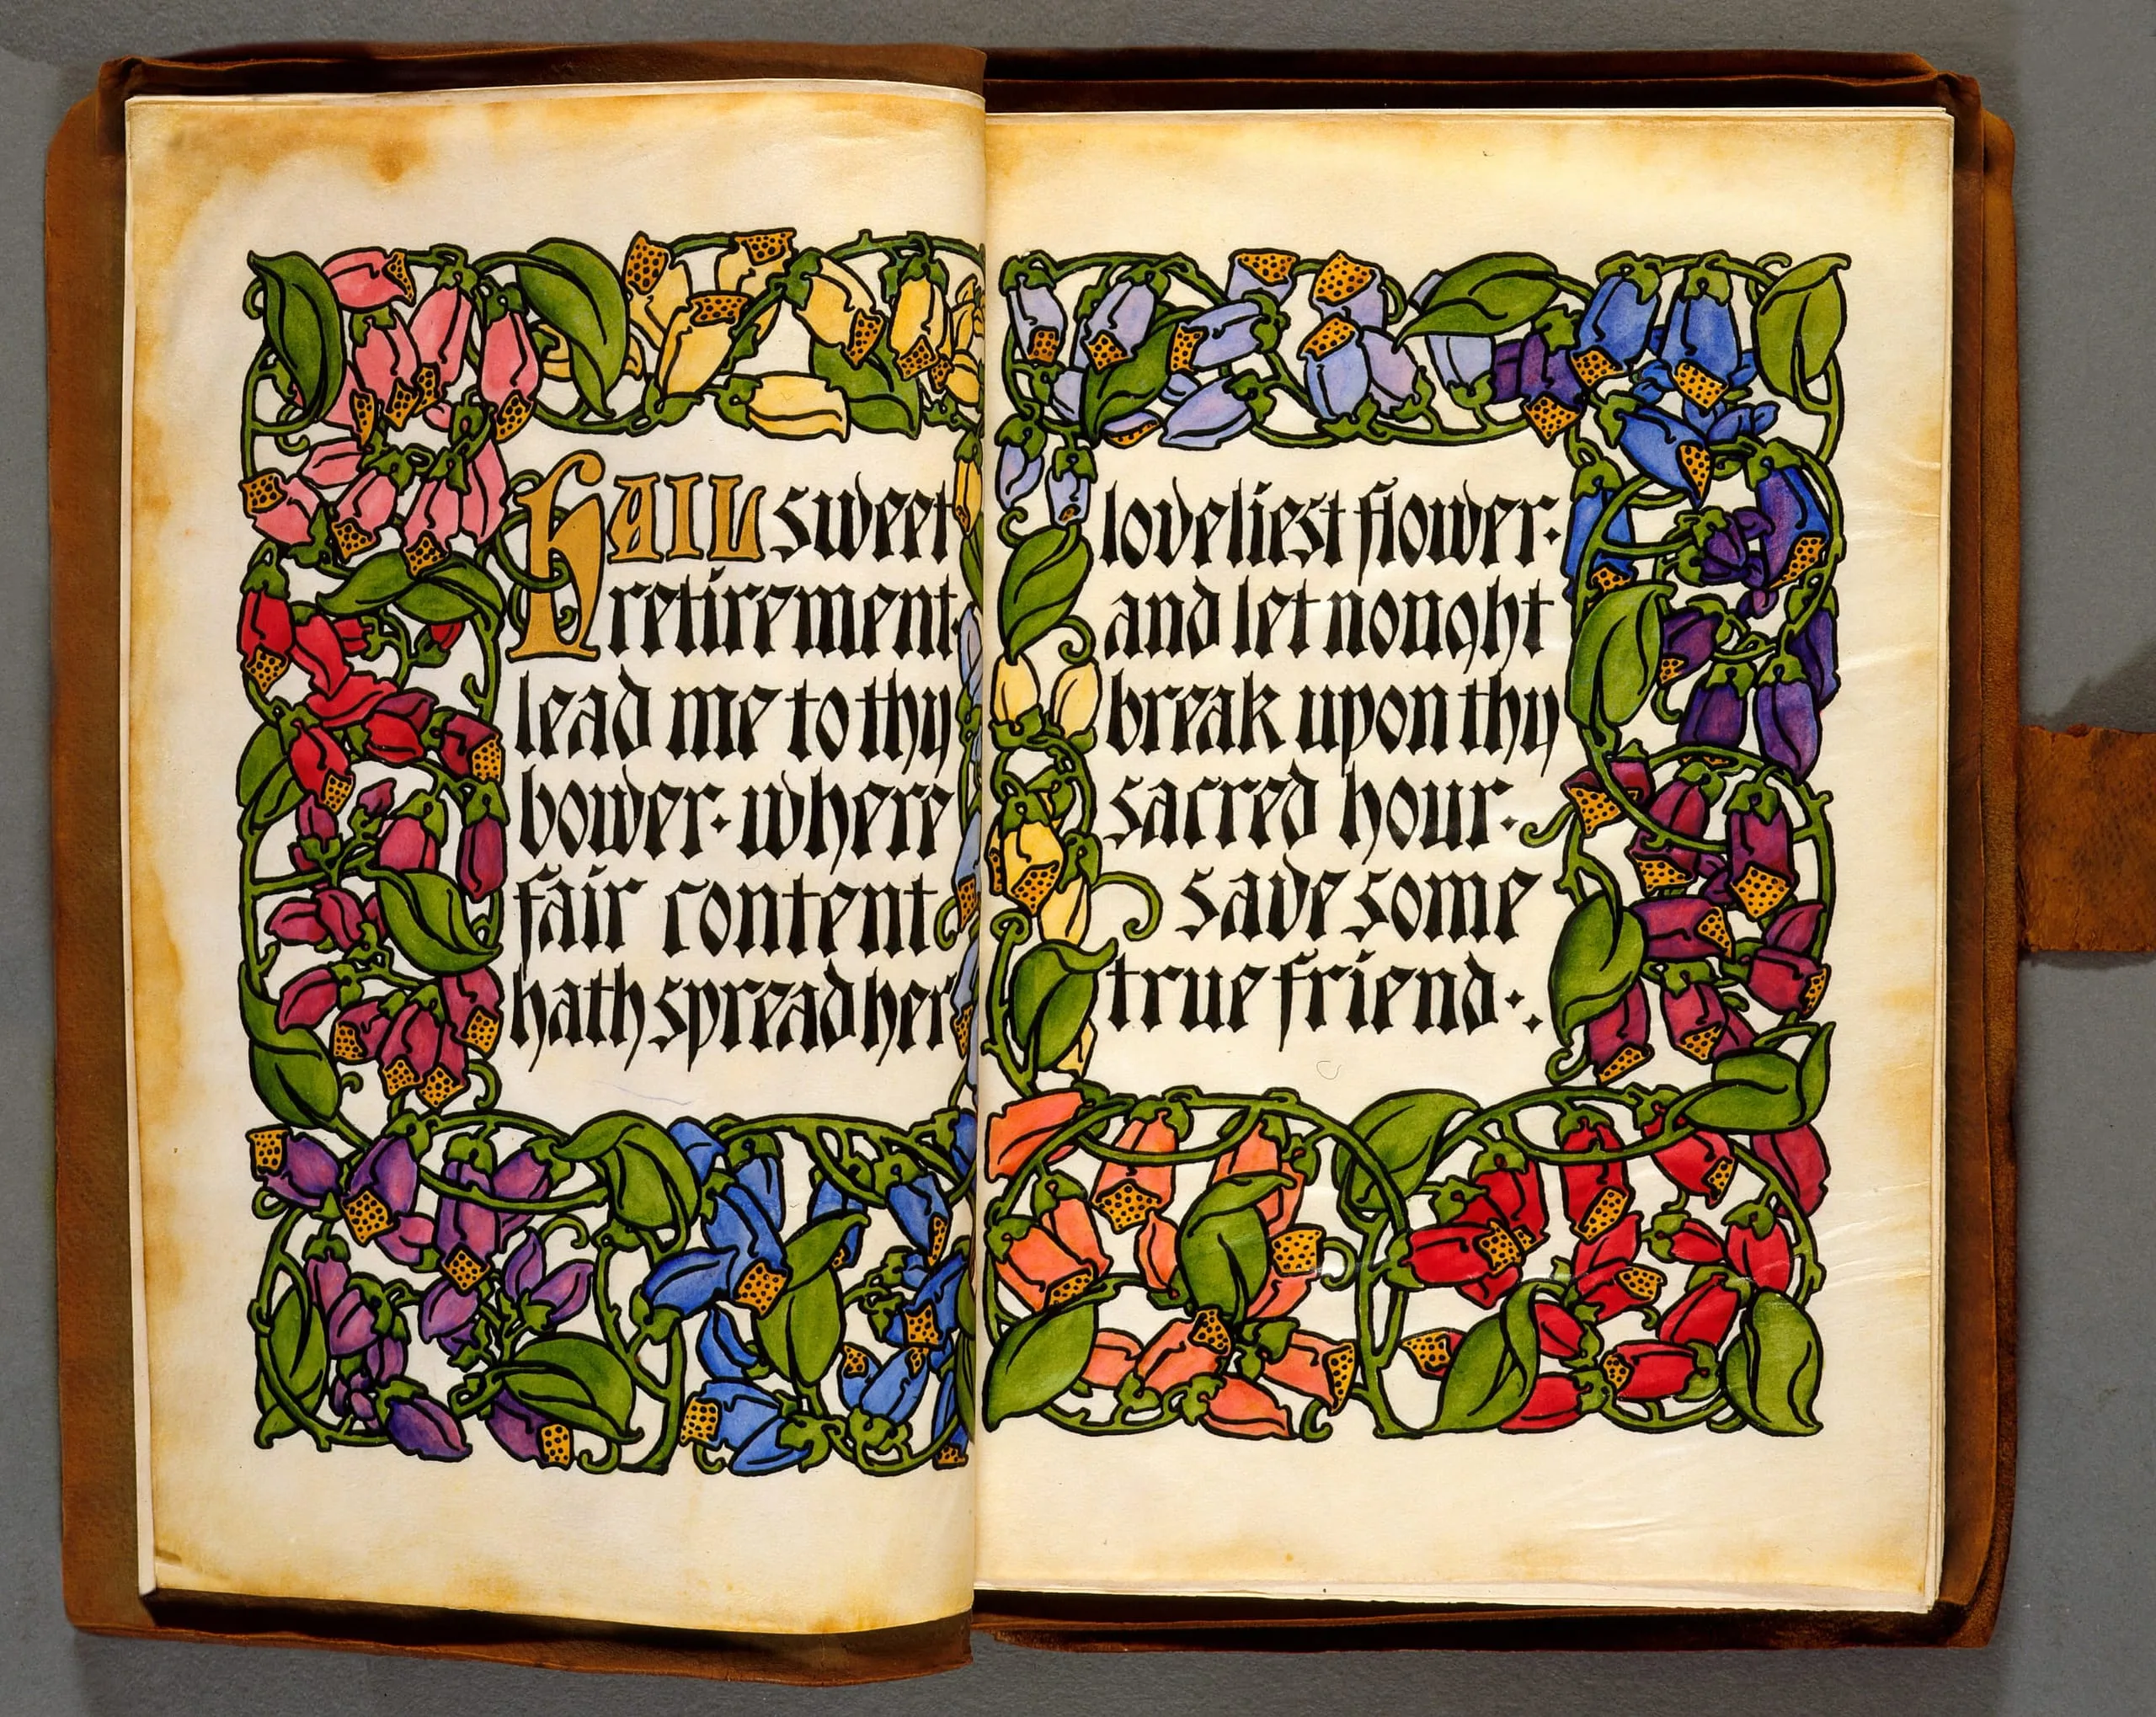 HAIL sweet
retirement·
lead me to thy
bower· where
fair content
hath spread her
loveliest flower:
and let nought
break upon thy
sacred hour·
save some
true friend·: